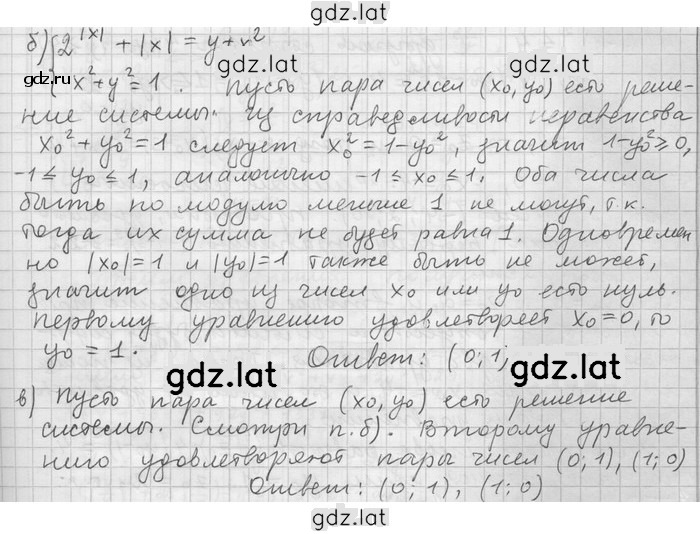 gdz.lat
б) { 2^|x| + |x| = y + x²
gdz.ru { x² + y² = 1 . Пусть пара чисел (x₀, y₀) есть реше-
ние системы. Из справедливости неравенства
x₀² + y₀² = 1 следует x₀² = 1 - y₀², значит 1 - y₀² ≥ 0,
-1 ≤ y₀ ≤ 1, аналогично -1 ≤ x₀ ≤ 1. Оба числа
быть по модулю меньше 1 не могут, т.к.
тогда их сумма не будет равна 1. Одновремен
но |x₀| = 1 и |y₀| = 1 также быть не может,
значит одно из чисел x₀ или y₀ есть нуль.
Первому уравнению удовлетворяет x₀ = 0, то
y₀ = 1. Ответ: (0; 1)
gdz.lat gdz.lat
в) Пусть пара чисел (x₀, y₀) есть решение
системы. Смотри п. б). Второму уравне-
нию удовлетворяют пары чисел (0; 1), (1; 0)
Ответ: (0; 1), (1; 0)
gdz.lat